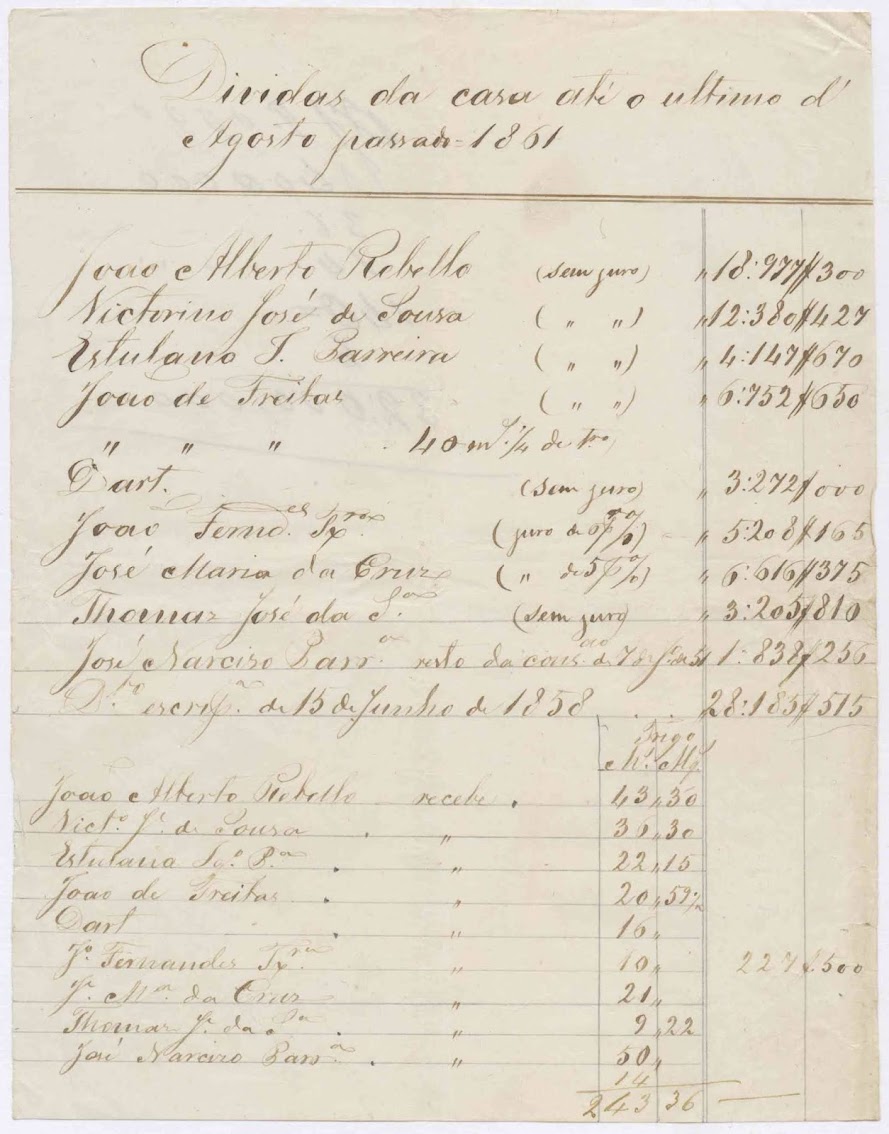 Dividas da casa até o ultimo d'
Agosto passado=1861
João Alberto Rebello (sem juro) " 18:977$300
Victorino José de Sousa ( " " ) " 12:380$427
Estulano I. Parreira ( " " ) " 4:147$670
João de Freitas ( " " ) " 6:752$650
" " " 40 m.s 1/4 de t.ro
Dart. (sem juro) " 3:272$000
João Fernd.es Tx.ra (juro de %) " 5:208$165
José Maria da Cruz ( " de 5 %) " 6:616$375
Thomaz José da S.a (sem juro) " 3:205$810
José Narcizo Parr.a resto da de 7 de 51 1:838$256
D.to escrip.a de 15 de Junho de 1858 . . 28:185$515
Trigo
M.s Alq.
João Alberto Rebello recebe . 43,,30
Vict.o J.e de Sousa . " 36,,30
Estulano P.a . " 22,,15
João de Freitas . " 20,,59 1/2
Dart . " 16,,
J.o Fernandes Tx.ra " 10,, 227$500
J.e M.a da Cruz " 21,,
Thomaz J.e da S.a . " 9,,22
José Narcizo Parr.a . " 50,,
14
243 36